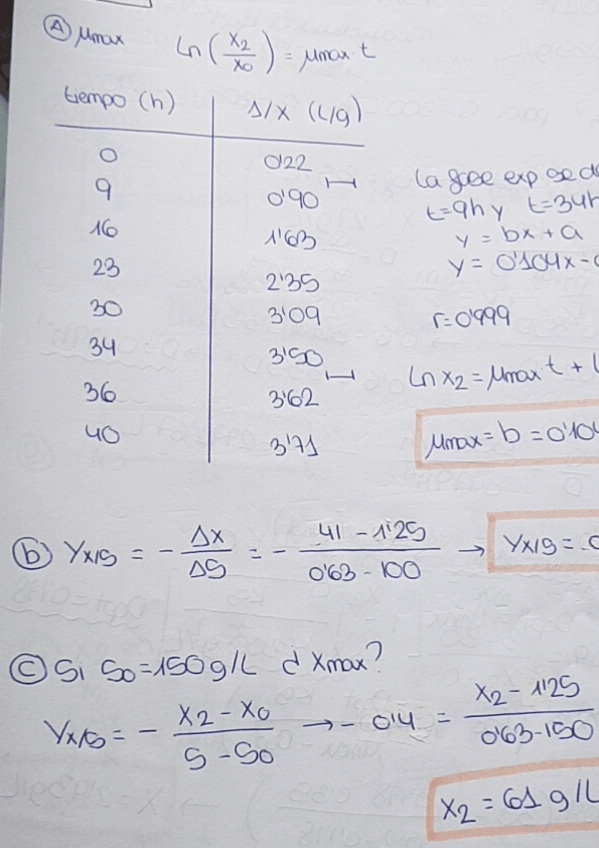 Ⓐ μmax Ln (X2/X0) = μmax t
tiempo (h) 1/X (L/g)
0 0'22
9 0'90
16 1'63
23 2'35
30 3'09
34 3'50
36 3'62
40 3'71
La fase exp se d
t=9h y t=34h
y = bx + a
y = 0'104x -
r=0'999
Ln X2 = μmax t +
μmax = b = 0'104
ⓑ Yx/s = - ΔX/ΔS = - 41 - 1'25 / 0'63 - 100 → Yx/s =
Ⓒ Si S0=150g/L ¿ Xmax?
Yx/s = - X2 - X0 / S - S0 → - 0'4 = X2 - 1'25 / 0'63-150
X2 = 61 g/L